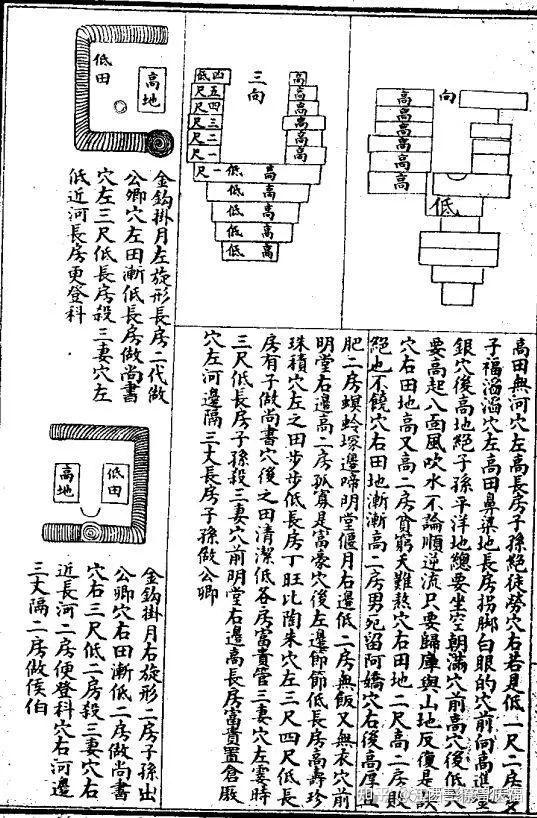 向
高
高
高
高
高
低
三向
低四
尺五
尺四
尺三
尺二
尺一
尺一
高
高
高
高
高
低 高
低 高
低 高
低 高
低 高
高田無河穴左高長房子孫絕徒勞穴右若是低一尺二房
子福滔滔穴左高田鼻梁地長房拐脚白眼的穴前向高進
銀穴後高地絕子孫平洋地總要坐空朝滿穴前高穴後低
要高起八面風吹水不論順逆流只要歸庫與山地反復是
穴右田地高又高二房貧窮天難熬穴右田地二尺高二房敗
絕也不饒穴右田地漸漸高二房男死留阿嬌穴右後高厚且
肥二房螟蛉塚邊啼明堂偃月右邊低二房無飯又無衣穴前
明堂右邊高二房孤寡是富豪穴後左邊節節低長房高壽珍
珠積穴左之田步步低長房丁旺比陶朱穴左三尺四尺低長
房有子做尚書穴後之田清潔低各房富貴管三妻穴左霎時
三尺低長房子孫殺三妻穴前明堂右邊高長房富貴置倉厫
穴左河邊隔三丈長房子孫做公卿
低田
高地
金鈎掛月左旋形長房二代做
公卿穴左田漸低長房做尚書
穴左三尺低長房殺三妻穴左
低近河長房更登科
低田
高地
金鈎掛月右旋形二房子孫出
公卿穴右田漸低二房做尚書
穴右三尺低二房殺三妻穴右
近長河二房便登科穴右河邊
三丈隔二房做侯伯
知乎